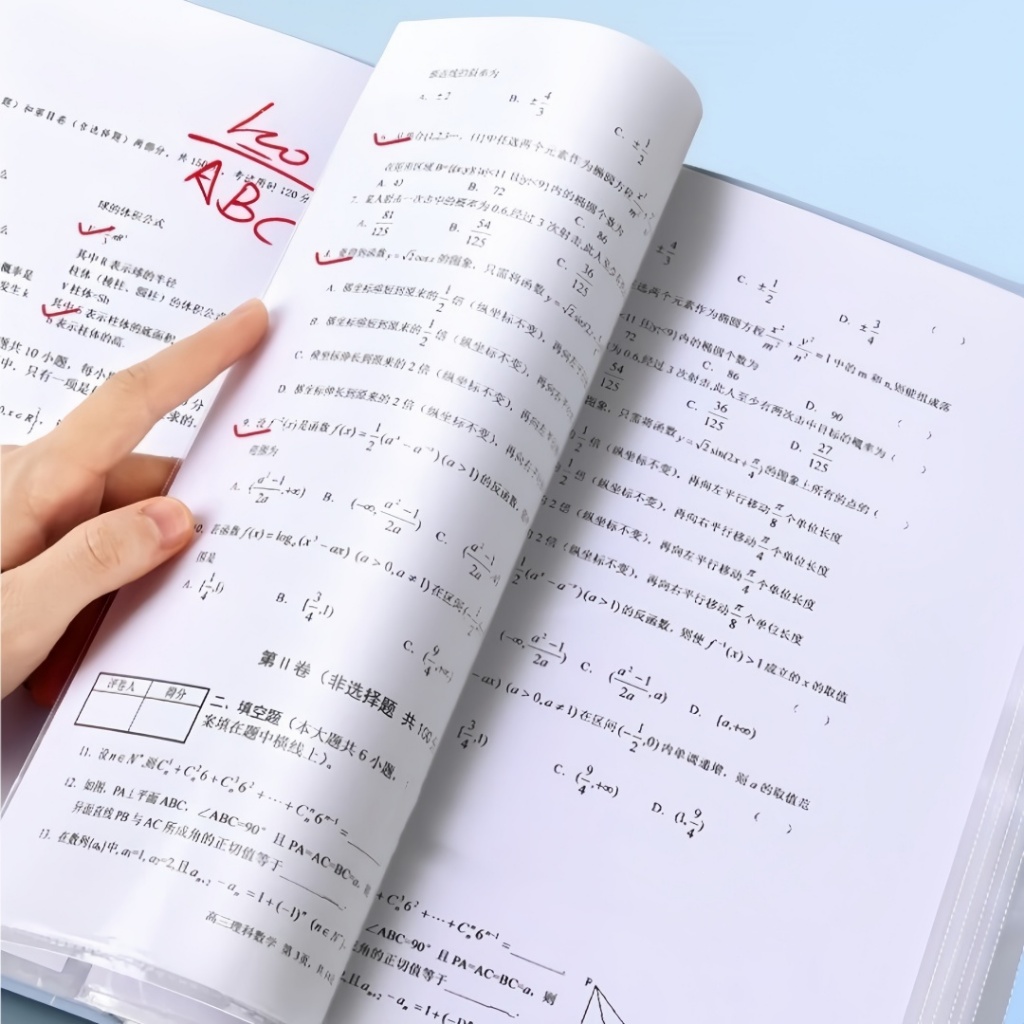 题）和第II卷（含选择题）两部分，共150
考试用时120分
100
ABC
球的体积公式
其中R表示球的半径
柱体（棱柱、圆柱）的体积公式
V柱体=Sh
表示柱体的底面积
h表示柱体的高.
共10小题，每小
中，只有一项是
A. ±2 B. ±4/3 C. ±1/2
中任选两个元素作为椭圆方程
内的椭圆个数为
B. 72 C. 86
7. 某人射击一次击中的概率为0.6,经过3次射击,此人至少有
A. 81/125 B. 54/125 C. 36/125
y=√2cosx的图象，只需将函数y=√2sin(2x
A. 横坐标缩短到原来的1/2倍（纵坐标不变），再向
B. 横坐标缩短到原来的1/2倍（纵坐标不变），再向
C. 横坐标伸长到原来的2倍（纵坐标不变），再向
D. 横坐标伸长到原来的2倍（纵坐标不变），再向
9. 设f⁻¹(x)是函数f(x)=1/2(aˣ-a⁻ˣ)(a>1)的反函数,
范围为
A. (a²-1/2a,+∞) B. (-∞,a²-1/2a) C. (a²-1/2a,
10. 若函数f(x)=logₐ(x³-ax)(a>0,a≠1)在区间(-1/2,
围是
A. [1/4,1) B. [3/4,1) C. (9/4,+∞)
第II卷（非选择题 共100
评卷人 得分
二、填空题（本大题共6小题，
案填在题中横线上）。
11. 设n∈N*,则Cₙ¹+Cₙ²6+Cₙ³6²+⋯+Cₙⁿ6ⁿ⁻¹=
12. 如图，PA⊥平面ABC，∠ABC=90°且PA=AC=BC=a，则
异面直线PB与AC所成角的正切值等于
13. 在数列{aₙ}中,a₁=1,a₂=2,且aₙ₊₂-aₙ=1+(-1)ⁿ(n∈N
高三理科数学 第3页，共
±4/3 C. ±1/2 D. ±3/4 （ ）
选两个元素作为椭圆方程x²/m²+y²/n²=1中的m和n,则能组成落
<11且|y|<9}内的椭圆个数为 （ ）
72 C. 86 D. 90
为0.6,经过3次射击,此人至少有两次击中目标的概率为（ ）
54/125 C. 36/125 D. 27/125
图象，只需将函数y=√2sin(2x+π/4)的图象上所有的点的（ ）
1/2倍（纵坐标不变），再向左平行移动π/8个单位长度
1/2倍（纵坐标不变），再向右平行移动π/4个单位长度
2倍（纵坐标不变），再向左平行移动π/4个单位长度
2倍（纵坐标不变），再向右平行移动π/8个单位长度
1/2(aˣ-a⁻ˣ)(a>1)的反函数，则使f⁻¹(x)>1成立的x的取值
（ ）
(-∞,a²-1/2a) C. (a²-1/2a,a) D. [a,+∞)
-ax)(a>0,a≠1)在区间(-1/2,0)内单调递增，则a的取值范
（ ）
[3/4,1) C. (9/4,+∞) D. (1,9/4)
+Cₙ³6²+⋯+Cₙⁿ6ⁿ⁻¹=
∠ABC=90°且PA=AC=BC=a，则
角的正切值等于
且aₙ₊₂-aₙ=1+(-1)ⁿ
P